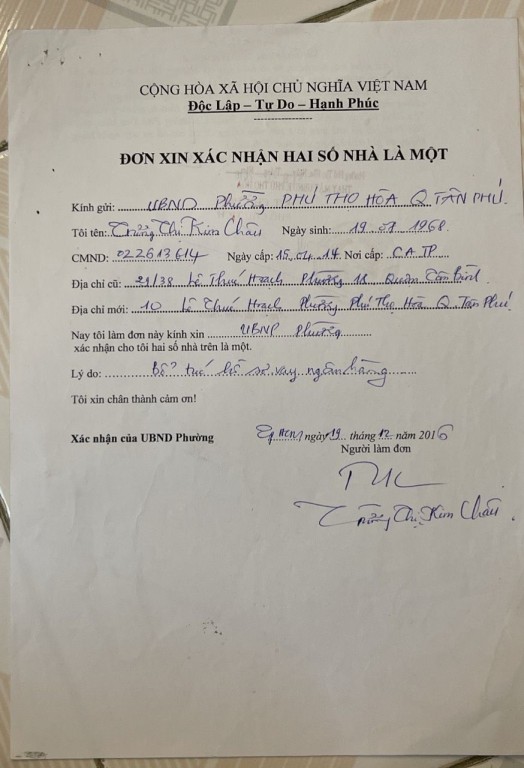 CỘNG HÒA XÃ HỘI CHỦ NGHĨA VIỆT NAM
Độc Lập – Tự Do – Hạnh Phúc
ĐƠN XIN XÁC NHẬN HAI SỐ NHÀ LÀ MỘT
Kính gửi: UBND Phường PHÚ THỌ HÒA Q TÂN PHÚ.
Tôi tên: Trương Thị Kim Châu Ngày sinh: 19.07.1968
CMND: 022613614 Ngày cấp: 15.04.14. Nơi cấp: C.A.TP
Địa chỉ cũ: 21/38 Lê Thúc Hoạch Phường 18 Quận Tân Bình
Địa chỉ mới: 10 Lê Thúc Hoạch Phường Phú Thọ Hòa Q. Tân Phú
Nay tôi làm đơn này kính xin UBNP Phường
xác nhận cho tôi hai số nhà trên là một.
Lý do: Bổ túc hồ sơ vay ngân hàng
Tôi xin chân thành cảm ơn!
Xác nhận của UBND Phường
Tp HCM, ngày 19 tháng 12 năm 2016
Người làm đơn
Trương Thị Kim Châu